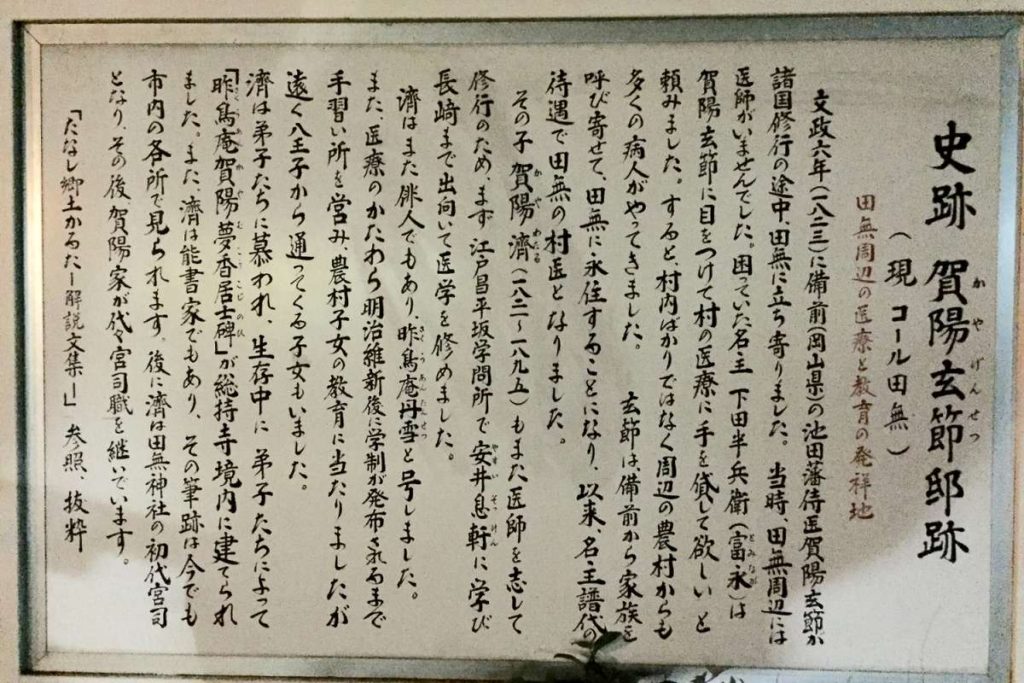 史跡 賀陽玄節邸跡
かやげんせつ
（現 コール田無）
田無周辺の医療と教育の発祥地
文政六年（一八二三）に備前（岡山県）の池田藩侍医賀陽玄節が
諸国修行の途中、田無に立ち寄りました。当時、田無周辺には
医師がいませんでした。困っていた名主 下田半兵衛（富永）は
とみなが
賀陽玄節に目をつけて村の医療に手を貸して欲しいと
頼みました。すると、村内ばかりではなく周辺の農村からも
多くの病人がやってきました。 玄節は備前から家族を
呼び寄せて、田無に永住することになり、以来、名主譜代の
待遇で田無の村医となりました。
その子 賀陽濟（一八二一～一八九五）もまた医師を志して
かやわたる
修行のため、まず江戸昌平坂学問所で安井息軒に学び
やすいそっけん
長崎まで出向いて医学を修めました。
濟はまた俳人でもあり、昨鳥庵丹雪と号しました。
さくうあんたんせつ
また、医療のかたわら明治維新後に学制が発布されるまで
手習い所を営み、農村子女の教育に当たりましたが
遠く八王子から通ってくる子女もいました。
濟は弟子たちに慕われ、生存中に弟子たちによって
「昨鳥庵賀陽夢香居士碑」が総持寺境内に建てられ
ました。また、濟は能書家でもあり、その筆跡は今でも
市内の各所で見られます。後に濟は田無神社の初代宮司
となり、その後賀陽家が代々宮司職を継いでいます。
「たなし郷土かるたー解説文集ー」参照、抜粋